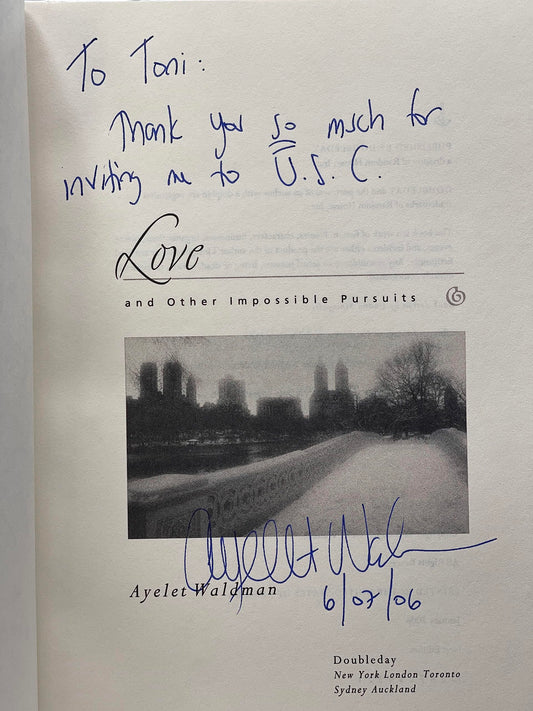 To Toni:
Thank you so much for
inviting me to U.S.C.
Love
and Other Impossible Pursuits
Ayelet Waldman
Ayelet Waldman
6/07/06
Doubleday
New York London Toronto
Sydney Auckland